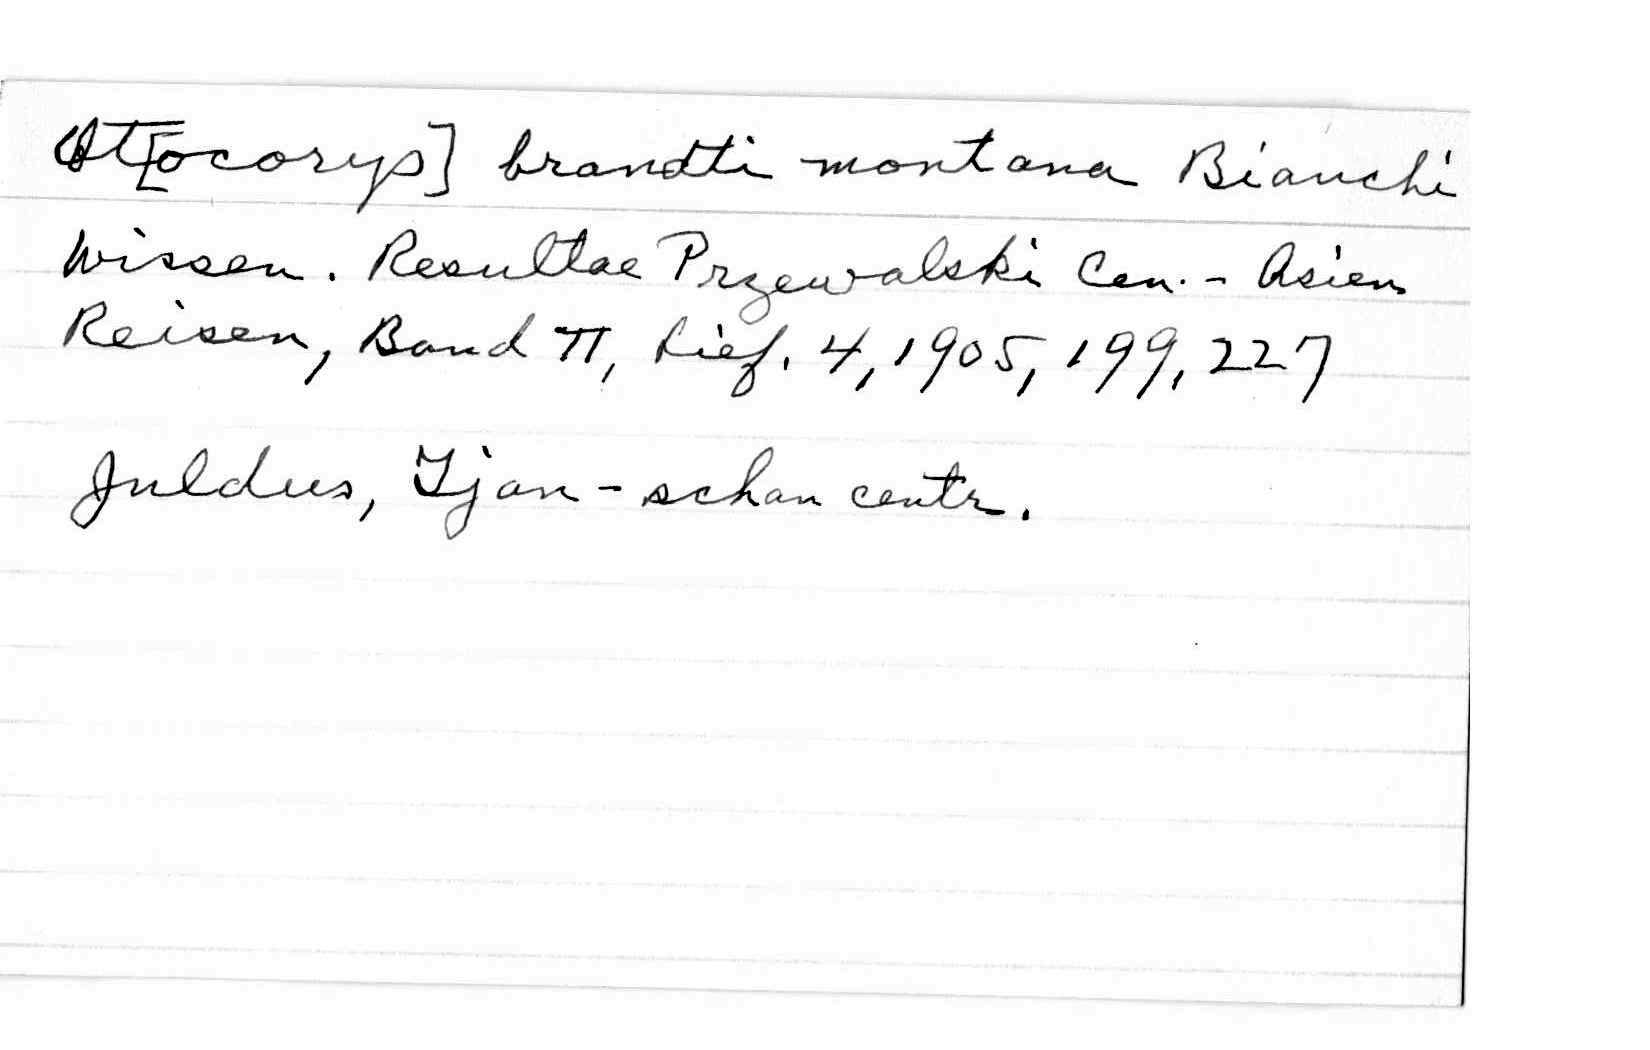 Ot[ocorys] brandti montana Bianchi
Wissen. Resultae Przewalski Cen.- Asien
Reisen, Band II, Lief. 4, 1905, 199, 227
Juldus, Tjan-schan centr.